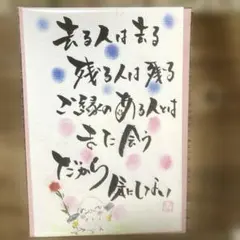 去る人は去る
残る人は残る
ご縁のある人とは
また会う
だから 気にしない